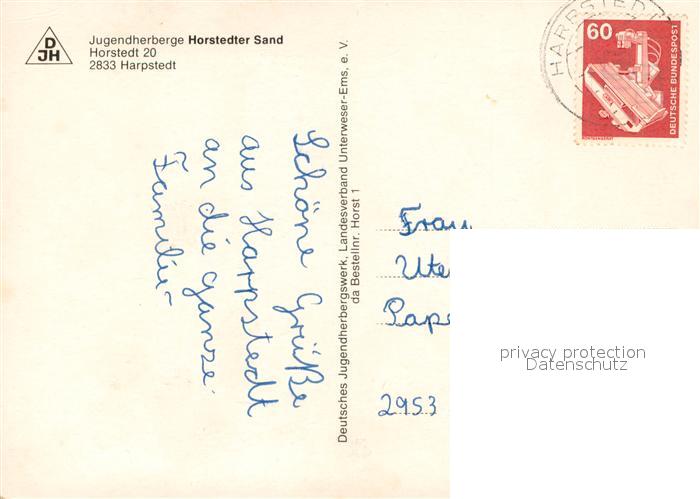 D
JH
Jugendherberge Horstedter Sand
Horstedt 20
2833 Harpstedt
Schöne Grüße
aus Harpstedt
an die ganze
Familie
Deutsches Jugendherbergswerk, Landesverband Unterweser-Ems, e. V.
da Bestellnr. Horst 1
60
DEUTSCHE BUNDESPOST
RÖNTGENGERÄT
Frau
Ute
2953
privacy protection
Datenschutz